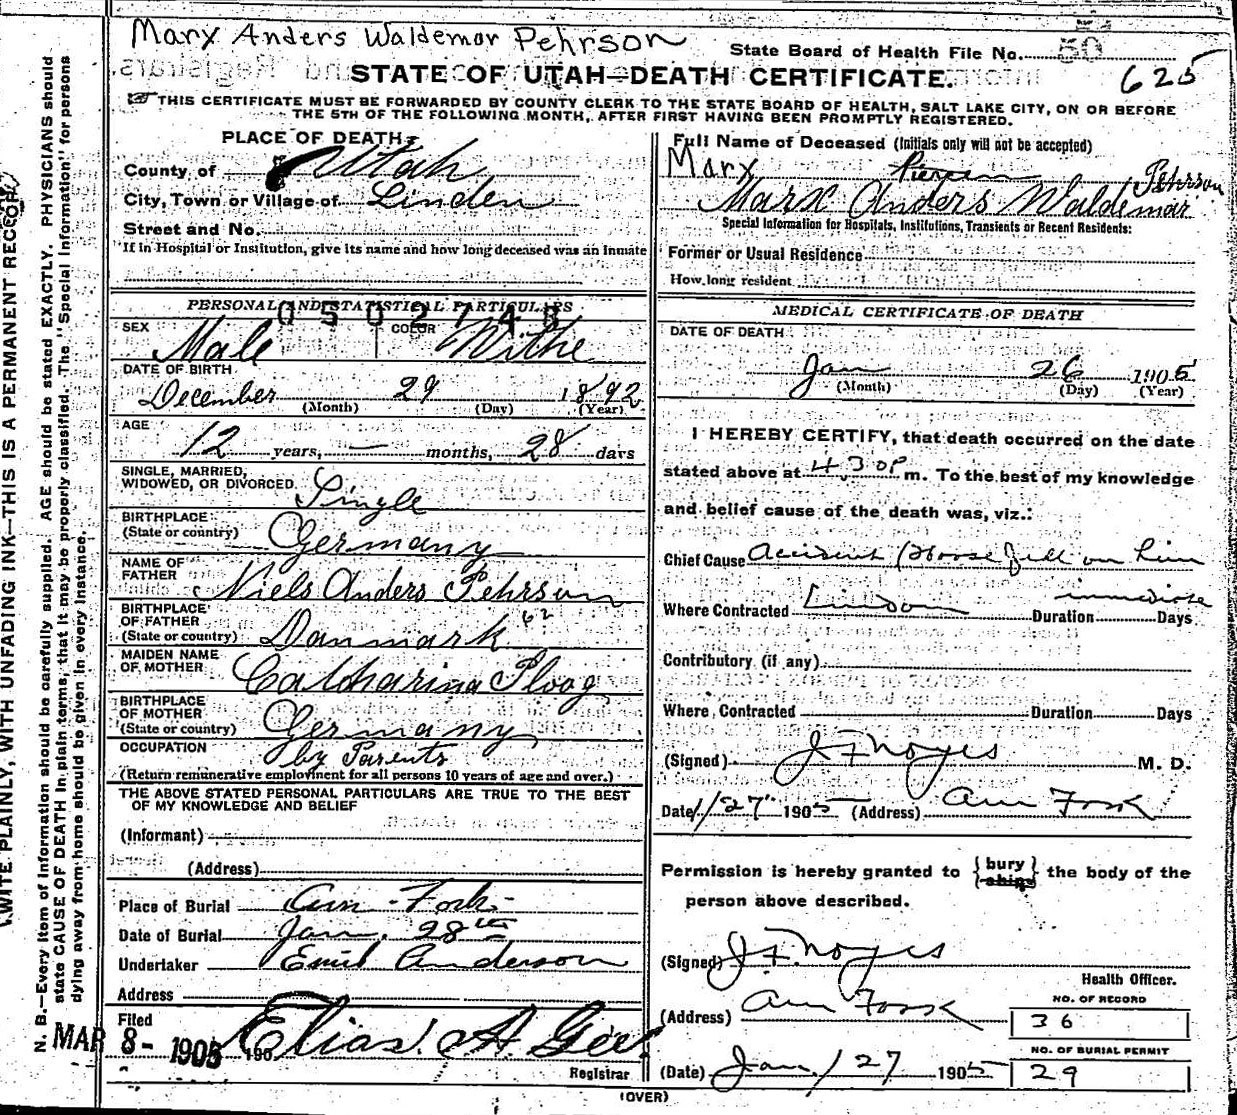 Marx Anders Waldemar Pehrson
State Board of Health File No. 50
625
STATE OF UTAH—DEATH CERTIFICATE.
THIS CERTIFICATE MUST BE FORWARDED BY COUNTY CLERK TO THE STATE BOARD OF HEALTH, SALT LAKE CITY, ON OR BEFORE
THE 5TH OF THE FOLLOWING MONTH, AFTER FIRST HAVING BEEN PROMPTLY REGISTERED.
WRITE PLAINLY, WITH UNFADING INK—THIS IS A PERMANENT RECORD
N. B.—Every item of information should be carefully supplied. AGE should be stated EXACTLY. PHYSICIANS should
state CAUSE OF DEATH in plain terms, that it may be properly classified. The "Special Information" for persons
dying away from home should be given in every instance.
PLACE OF DEATH:
County of Utah
City, Town or Village of Linden
Street and No.
If in Hospital or Institution, give its name and how long deceased was an inmate
PERSONAL AND STATISTICAL PARTICULARS
0502748
SEX Male COLOR Withe
DATE OF BIRTH
December 29 1892
(Month) (Day) (Year)
AGE
12 years, — months, 28 days
SINGLE, MARRIED,
WIDOWED, OR DIVORCED Single
BIRTHPLACE
(State or country) Germany
NAME OF
FATHER Niels Anders Pehrson
BIRTHPLACE
OF FATHER
(State or country) Danmark 62
MAIDEN NAME
OF MOTHER Catharina Ploog
BIRTHPLACE
OF MOTHER
(State or country) Germany
OCCUPATION by Parents
(Return remunerative employment for all persons 10 years of age and over.)
THE ABOVE STATED PERSONAL PARTICULARS ARE TRUE TO THE BEST
OF MY KNOWLEDGE AND BELIEF
(Informant)
(Address)
Place of Burial Am - Fork
Date of Burial Jan. 28th
Undertaker Emil Anderson
Address
Filed
MAR 8- 1905 190 Elias A. Gee
Registrar
Full Name of Deceased (Initials only will not be accepted)
Marx Piersen Pehrson
Marx Anders Waldemar
Special Information for Hospitals, Institutions, Transients or Recent Residents:
Former or Usual Residence
How long resident
MEDICAL CERTIFICATE OF DEATH
DATE OF DEATH
Jan 26 1905
(Month) (Day) (Year)
I HEREBY CERTIFY, that death occurred on the date
stated above at 4 30 P m. To the best of my knowledge
and belief cause of the death was, viz.:
Chief Cause Accident (Horse fell on him
Where Contracted Lindon Duration immediate Days
Contributory (if any)
Where Contracted Duration Days
(Signed) J F Noyes M. D.
Date 1/27 1905 (Address) Am Fork
Permission is hereby granted to { bury ship } the body of the
person above described.
(Signed) J. F. Noyes
Health Officer.
(Address) Am Fork
NO. OF RECORD
36
(Date) Jan. / 27 1905
NO. OF BURIAL PERMIT
29
(OVER)